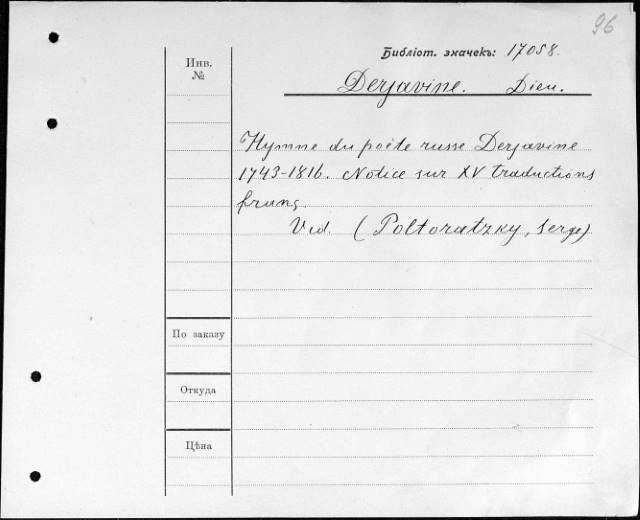 96
Библіот. значекъ: 17058.
Инв.
№
Derjavine. Dieu.
Hymne du poète russe Derjavine
1743-1816. Notice sur XV traductions
franç.
Vid. (Poltoratzky, Serge).
По заказу
Откуда
Цѣна